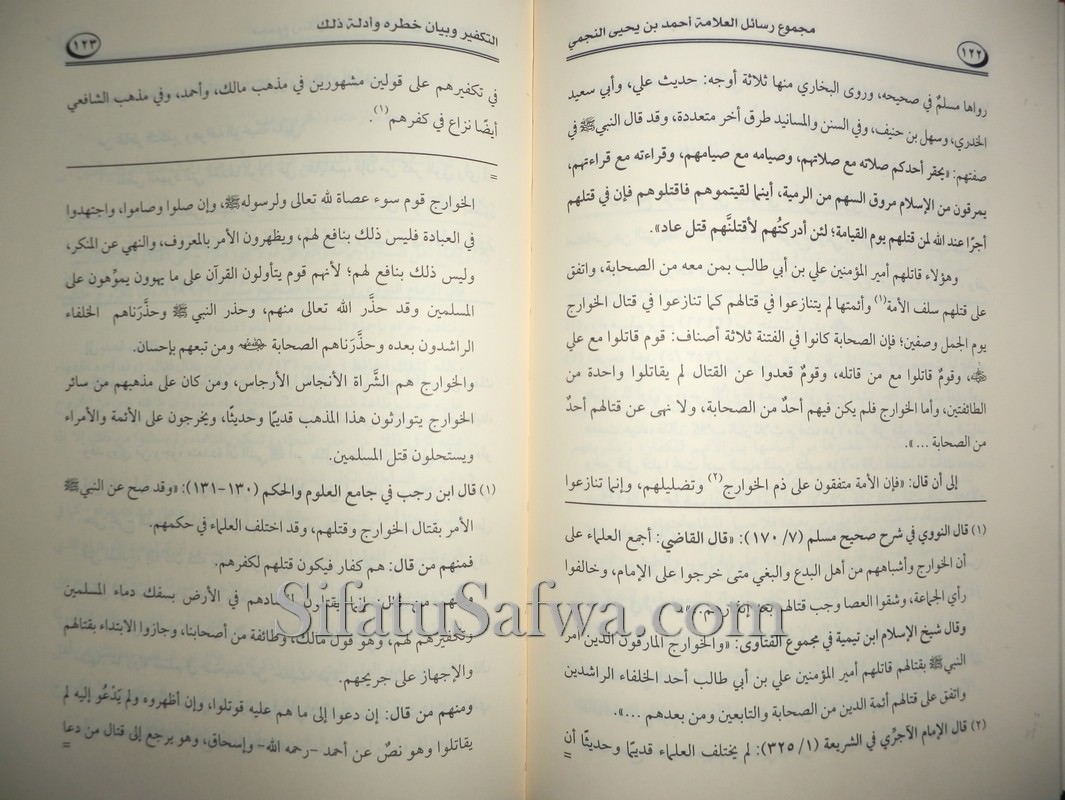 مجموع رسائل العلامة أحمد بن يحيى النجمي
١٢٢
رواها مسلمٌ في صحيحه، وروى البخاري منها ثلاثة أوجه: حديث علي، وأبي سعيد
الخدري، وسهل بن حنيف، وفي السنن والمسانيد طرق أخر متعددة، وقد قال النبي ﷺ في
صفتهم: «يحقر أحدكم صلاته مع صلاتهم، وصيامه مع صيامهم، وقراءته مع قراءتهم،
يمرقون من الإسلام مروق السهم من الرمية، أينما لقيتموهم فاقتلوهم فإن في قتلهم
أجرًا عند الله لمن قتلهم يوم القيامة؛ لئن أدركتُهم لأقتلنَّهم قتل عاد».
وهؤلاء قاتلهم أمير المؤمنين علي بن أبي طالب بمن معه من الصحابة، واتفق
على قتلهم سلف الأمة(١) وأئمتها لم يتنازعوا في قتالهم كما تنازعوا في قتال الخوارج
يوم الجمل وصفين؛ فإن الصحابة كانوا في الفتنة ثلاثة أصناف: قوم قاتلوا مع علي
رضي الله عنه، وقومٌ قاتلوا مع من قاتله، وقومٌ قعدوا عن القتال لم يقاتلوا واحدة من
الطائفتين، وأما الخوارج فلم يكن فيهم أحدٌ من الصحابة، ولا نهى عن قتالهم أحدٌ
من الصحابة ...».
إلى أن قال: «فإن الأمة متفقون على ذم الخوارج(٢) وتضليلهم، وإنما تنازعوا
(١) قال النووي في شرح صحيح مسلم (٧/ ١٧٠): «قال القاضي: أجمع العلماء على
أن الخوارج وأشباههم من أهل البدع والبغي متى خرجوا على الإمام، وخالفوا
رأي الجماعة، وشقوا العصا وجب قتالهم بعد
وقال شيخ الإسلام ابن تيمية في مجموع الفتاوى: «والخوارج المارقون الذين أمر
النبي ﷺ بقتالهم قاتلهم أمير المؤمنين علي بن أبي طالب أحد الخلفاء الراشدين
واتفق على قتالهم أئمة الدين من الصحابة والتابعين ومن بعدهم ...».
(٢) قال الإمام الآجرِّي في الشريعة (١/ ٣٢٥): لم يختلف العلماء قديمًا وحديثًا أن
=
التكفير وبيان خطره وأدلة ذلك
١٢٣
في تكفيرهم على قولين مشهورين في مذهب مالك، وأحمد، وفي مذهب الشافعي
أيضًا نزاع في كفرهم(١).
=
الخوارج قوم سوء عصاة لله تعالى ولرسوله ﷺ، وإن صلوا وصاموا، واجتهدوا
في العبادة فليس ذلك بنافع لهم، ويظهرون الأمر بالمعروف، والنهي عن المنكر،
وليس ذلك بنافع لهم؛ لأنهم قوم يتأولون القرآن على ما يهوون يموِّهون على
المسلمين وقد حذَّر الله تعالى منهم، وحذر النبي ﷺ وحذَّرَناهم الخلفاء
الراشدون بعده وحذَّرَناهم الصحابة رضي الله عنهم ومن تبعهم بإحسان.
والخوارج هم الشَّراة الأنجاس الأرجاس، ومن كان على مذهبهم من سائر
الخوارج يتوارثون هذا المذهب قديمًا وحديثًا، ويخرجون على الأئمة والأمراء
ويستحلون قتل المسلمين.
(١) قال ابن رجب في جامع العلوم والحكم (١٣٠-١٣١): «وقد صح عن النبي ﷺ
الأمر بقتال الخوارج وقتلهم، وقد اختلف العلماء في حكمهم.
فمنهم من قال: هم كفار فيكون قتلهم لكفرهم.
في الأرض بسفك دماء المسلمين
وتكفيرهم لهم، وهو قول مالك، وطائفة من أصحابنا، وجازوا الابتداء بقتالهم
والإجهاز على جريحهم.
ومنهم من قال: إن دعوا إلى ما هم عليه قوتلوا، وإن أظهروه ولم يَدْعُو إليه لم
يقاتلوا وهو نصٌ عن أحمد -رحمه الله- وإسحاق، وهو يرجع إلى قتال من دعا
=
SifatuSafwa.com